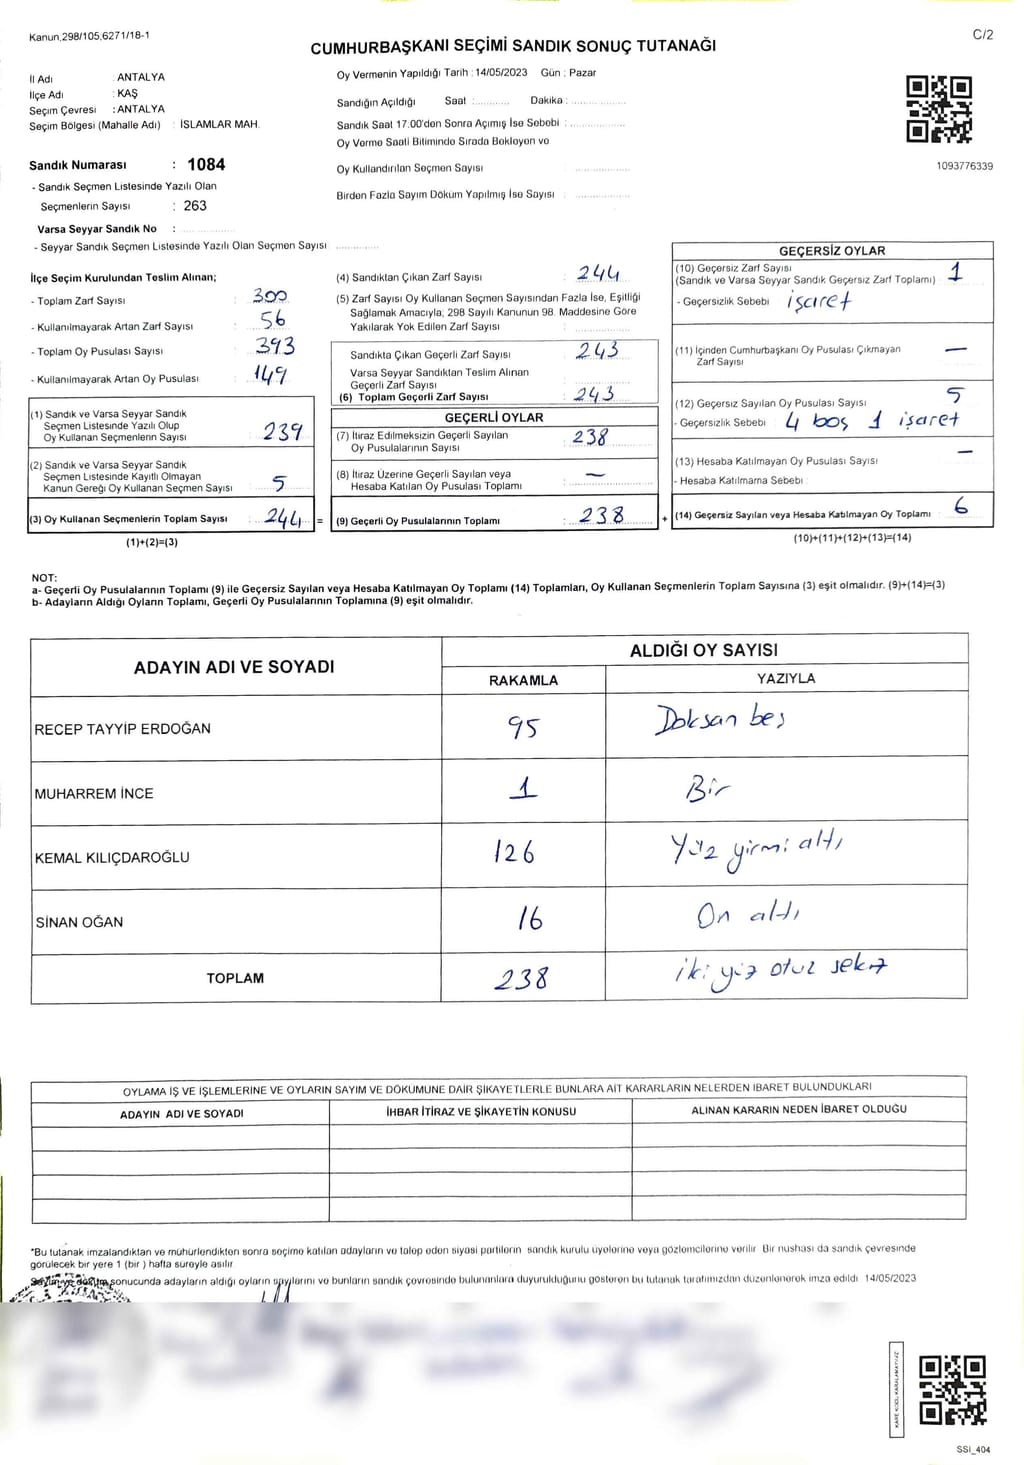 Kanun.298/105.6271/18-1
C/2
CUMHURBAŞKANI SEÇİMİ SANDIK SONUÇ TUTANAĞI
İl Adı : ANTALYA
İlçe Adı : KAŞ
Seçim Çevresi : ANTALYA
Seçim Bölgesi (Mahalle Adı) : İSLAMLAR MAH.
Sandık Numarası : 1084
- Sandık Seçmen Listesinde Yazılı Olan
Seçmenlerin Sayısı : 263
Varsa Seyyar Sandık No :
- Seyyar Sandık Seçmen Listesinde Yazılı Olan Seçmen Sayısı
Oy Vermenin Yapıldığı Tarih : 14/05/2023 Gün : Pazar
Sandığın Açıldığı Saat : Dakika :
Sandık Saat 17.00'den Sonra Açımış İse Sebebi :
Oy Verme Saati Bitiminde Sırada Bekleyen ve
Oy Kullandırılan Seçmen Sayısı :
Birden Fazla Sayım Döküm Yapılmış İse Sayısı :
1093776339
İlçe Seçim Kurulundan Teslim Alınan;
- Toplam Zarf Sayısı : 300
- Kullanılmayarak Artan Zarf Sayısı : 56
- Toplam Oy Pusulası Sayısı : 393
- Kullanılmayarak Artan Oy Pusulası : 149
(1) Sandık ve Varsa Seyyar Sandık
Seçmen Listesinde Yazılı Olup
Oy Kullanan Seçmenlerin Sayısı : 239
(2) Sandık ve Varsa Seyyar Sandık
Seçmen Listesinde Kayıtlı Olmayan
Kanun Gereği Oy Kullanan Seçmen Sayısı : 5
(3) Oy Kullanan Seçmenlerin Toplam Sayısı : 244 =
(1)+(2)=(3)
(4) Sandıktan Çıkan Zarf Sayısı : 244
(5) Zarf Sayısı Oy Kullanan Seçmen Sayısından Fazla İse, Eşitliği
Sağlamak Amacıyla; 298 Sayılı Kanunun 98. Maddesine Göre
Yakılarak Yok Edilen Zarf Sayısı :
Sandıkta Çıkan Geçerli Zarf Sayısı : 243
Varsa Seyyar Sandıktan Teslim Alınan
Geçerli Zarf Sayısı :
(6) Toplam Geçerli Zarf Sayısı : 243
GEÇERLİ OYLAR
(7) İtiraz Edilmeksizin Geçerli Sayılan
Oy Pusulalarının Sayısı : 238
(8) İtiraz Üzerine Geçerli Sayılan veya
Hesaba Katılan Oy Pusulası Toplamı : —
(9) Geçerli Oy Pusulalarının Toplamı : 238 +
GEÇERSİZ OYLAR
(10) Geçersiz Zarf Sayısı
(Sandık ve Varsa Seyyar Sandık Geçersiz Zarf Toplamı) : 1
- Geçersizlik Sebebi : işaret
(11) İçinden Cumhurbaşkanı Oy Pusulası Çıkmayan
Zarf Sayısı —
(12) Geçersiz Sayılan Oy Pusulası Sayısı 5
- Geçersizlik Sebebi : 4 boş 1 işaret
(13) Hesaba Katılmayan Oy Pusulası Sayısı —
- Hesaba Katılmama Sebebi :
(14) Geçersiz Sayılan veya Hesaba Katılmayan Oy Toplamı : 6
(10)+(11)+(12)+(13)=(14)
NOT:
a- Geçerli Oy Pusulalarının Toplamı (9) ile Geçersiz Sayılan veya Hesaba Katılmayan Oy Toplamı (14) Toplamları, Oy Kullanan Seçmenlerin Toplam Sayısına (3) eşit olmalıdır. (9)+(14)=(3)
b- Adayların Aldığı Oyların Toplamı, Geçerli Oy Pusulalarının Toplamına (9) eşit olmalıdır.
ADAYIN ADI VE SOYADI
ALDIĞI OY SAYISI
RAKAMLA YAZIYLA
RECEP TAYYİP ERDOĞAN 95 Doksan beş
MUHARREM İNCE 1 Bir
KEMAL KILIÇDAROĞLU 126 Yüz yirmi altı
SİNAN OĞAN 16 On altı
TOPLAM 238 iki yüz otuz sekiz
OYLAMA İŞ VE İŞLEMLERİNE VE OYLARIN SAYIM VE DÖKÜMÜNE DAİR ŞİKAYETLERLE BUNLARA AİT KARARLARIN NELERDEN İBARET BULUNDUKLARI
ADAYIN ADI VE SOYADI İHBAR İTİRAZ VE ŞİKAYETİN KONUSU ALINAN KARARIN NEDEN İBARET OLDUĞU
*Bu tutanak imzalandıktan ve mühürlendikten sonra seçime katılan adayların ve talep eden siyasi partilerin sandık kurulu üyelerine veya gözlemcilerine verilir. Bir nüshası da sandık çevresinde
görülecek bir yere 1 (bir ) hafta süreyle asılır.
sonucunda adayların aldığı oyların sayılarını ve bunların sandık çevresinde bulunanlara duyurulduğunu gösteren bu tutanak tarafımızdan düzenlenerek imza edildi. 14/05/2023
KARE KODU KARALAMAYINIZ
SSI_404